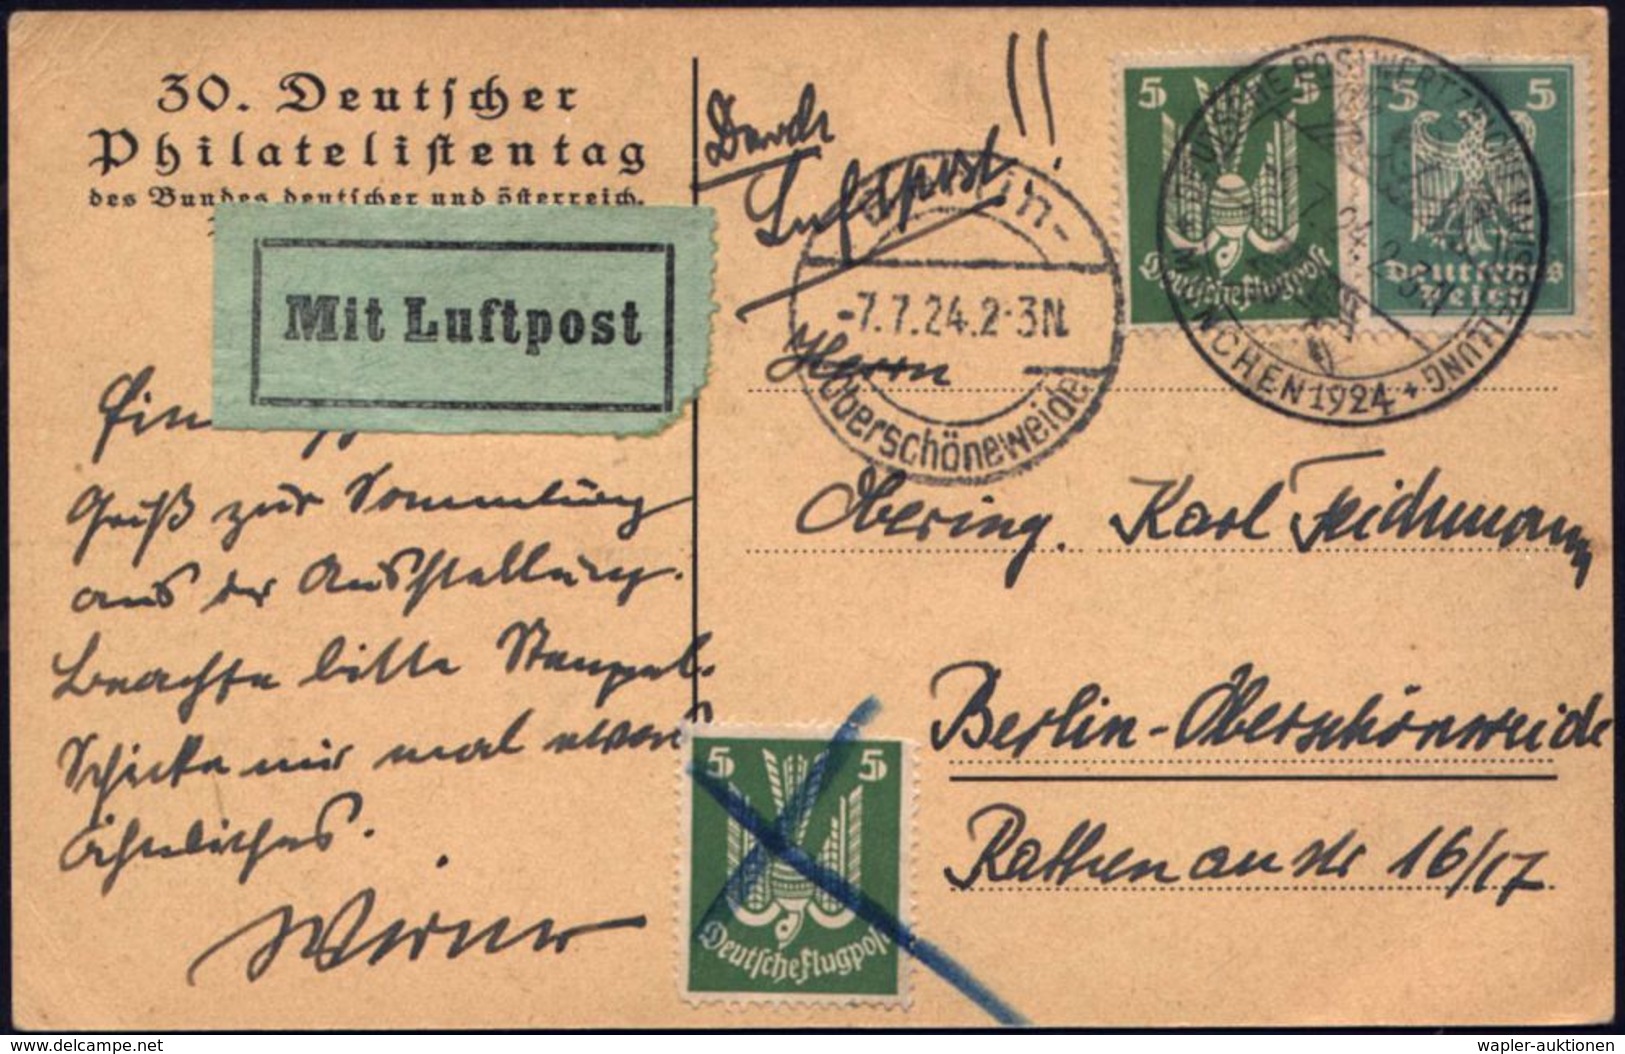 30. Deutscher
Philatelistentag
des Bundes deutscher und österreich.
Mit Luftpost
Ein
Gruß zur Sammlung
aus der Ausstellung.
Beachte bitte Stempel.
Schicke mir mal etwas
Ähnliches.
Werner
Durch
Luftpost!!
-7.7.24.2-3N.
Oberschöneweide
5 5
Deutsche Flugpost
5 5
Deutsches
Reich
DEUTSCHE POSTWERTZEICHENAUSSTELLUNG
MÜNCHEN 1924
Herrn
Obering. Karl Teichmann
Berlin-Oberschöneweide
Rathenaustr 16/17
5 5
Deutsche Flugpost
delcampe.net
wapler-auktionen